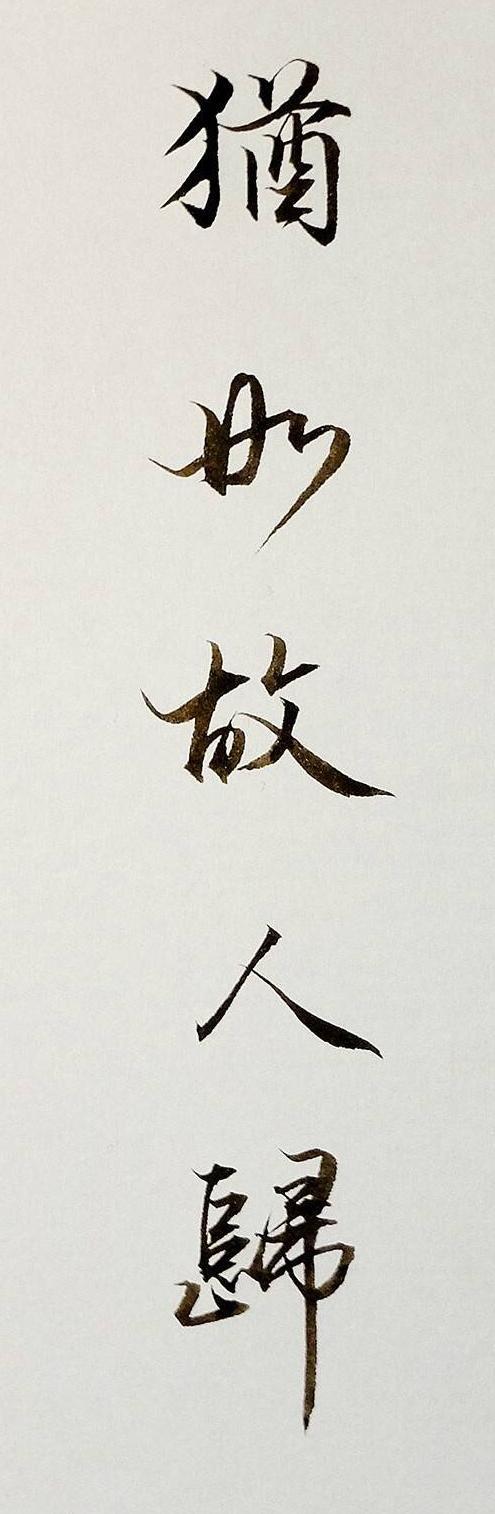 猶如故人歸